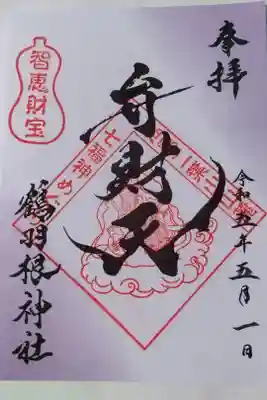 奉拝
令和五年五月一日
弁財天
七福神め
二葉
智恵財宝
鶴羽根神社